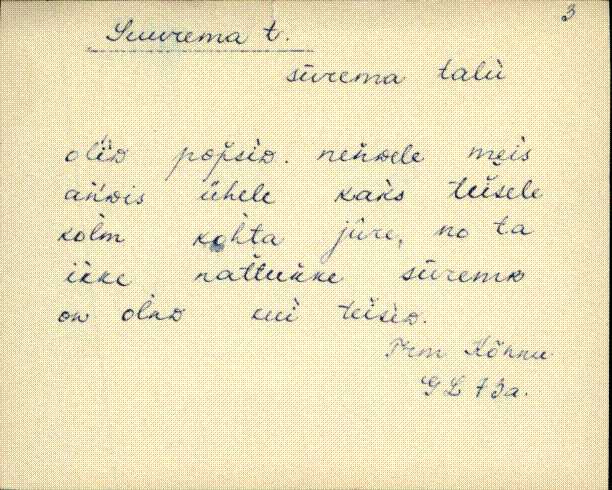 3
Suurema t.
sūrema talu
oliD popsiD. neńDele meis
ańDis ühele kaks teisele
kolm kohta jūre, no ta
ikke nattukke sūremB
on olnD kui teiseD.
Trm Kõnnu
GL 73a.